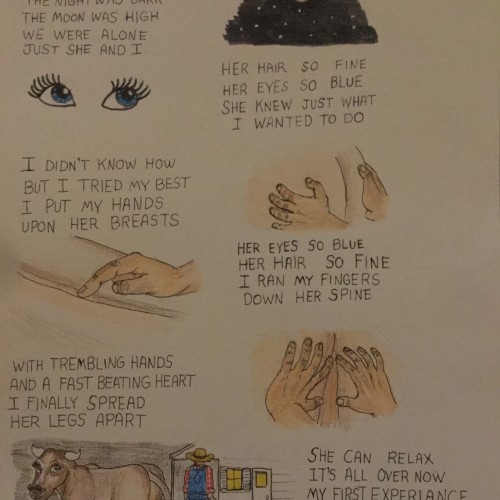 THE NIGHT WAS DARK
THE MOON WAS HIGH
WE WERE ALONE
JUST SHE AND I
HER HAIR SO FINE
HER EYES SO BLUE
SHE KNEW JUST WHAT
I WANTED TO DO
I DIDN'T KNOW HOW
BUT I TRIED MY BEST
I PUT MY HANDS
UPON HER BREASTS
HER EYES SO BLUE
HER HAIR SO FINE
I RAN MY FINGERS
DOWN HER SPINE
WITH TREMBLING HANDS
AND A FAST BEATING HEART
I FINALLY SPREAD
HER LEGS APART
SHE CAN RELAX
IT'S ALL OVER NOW
MY FIRST EXPERIANCE